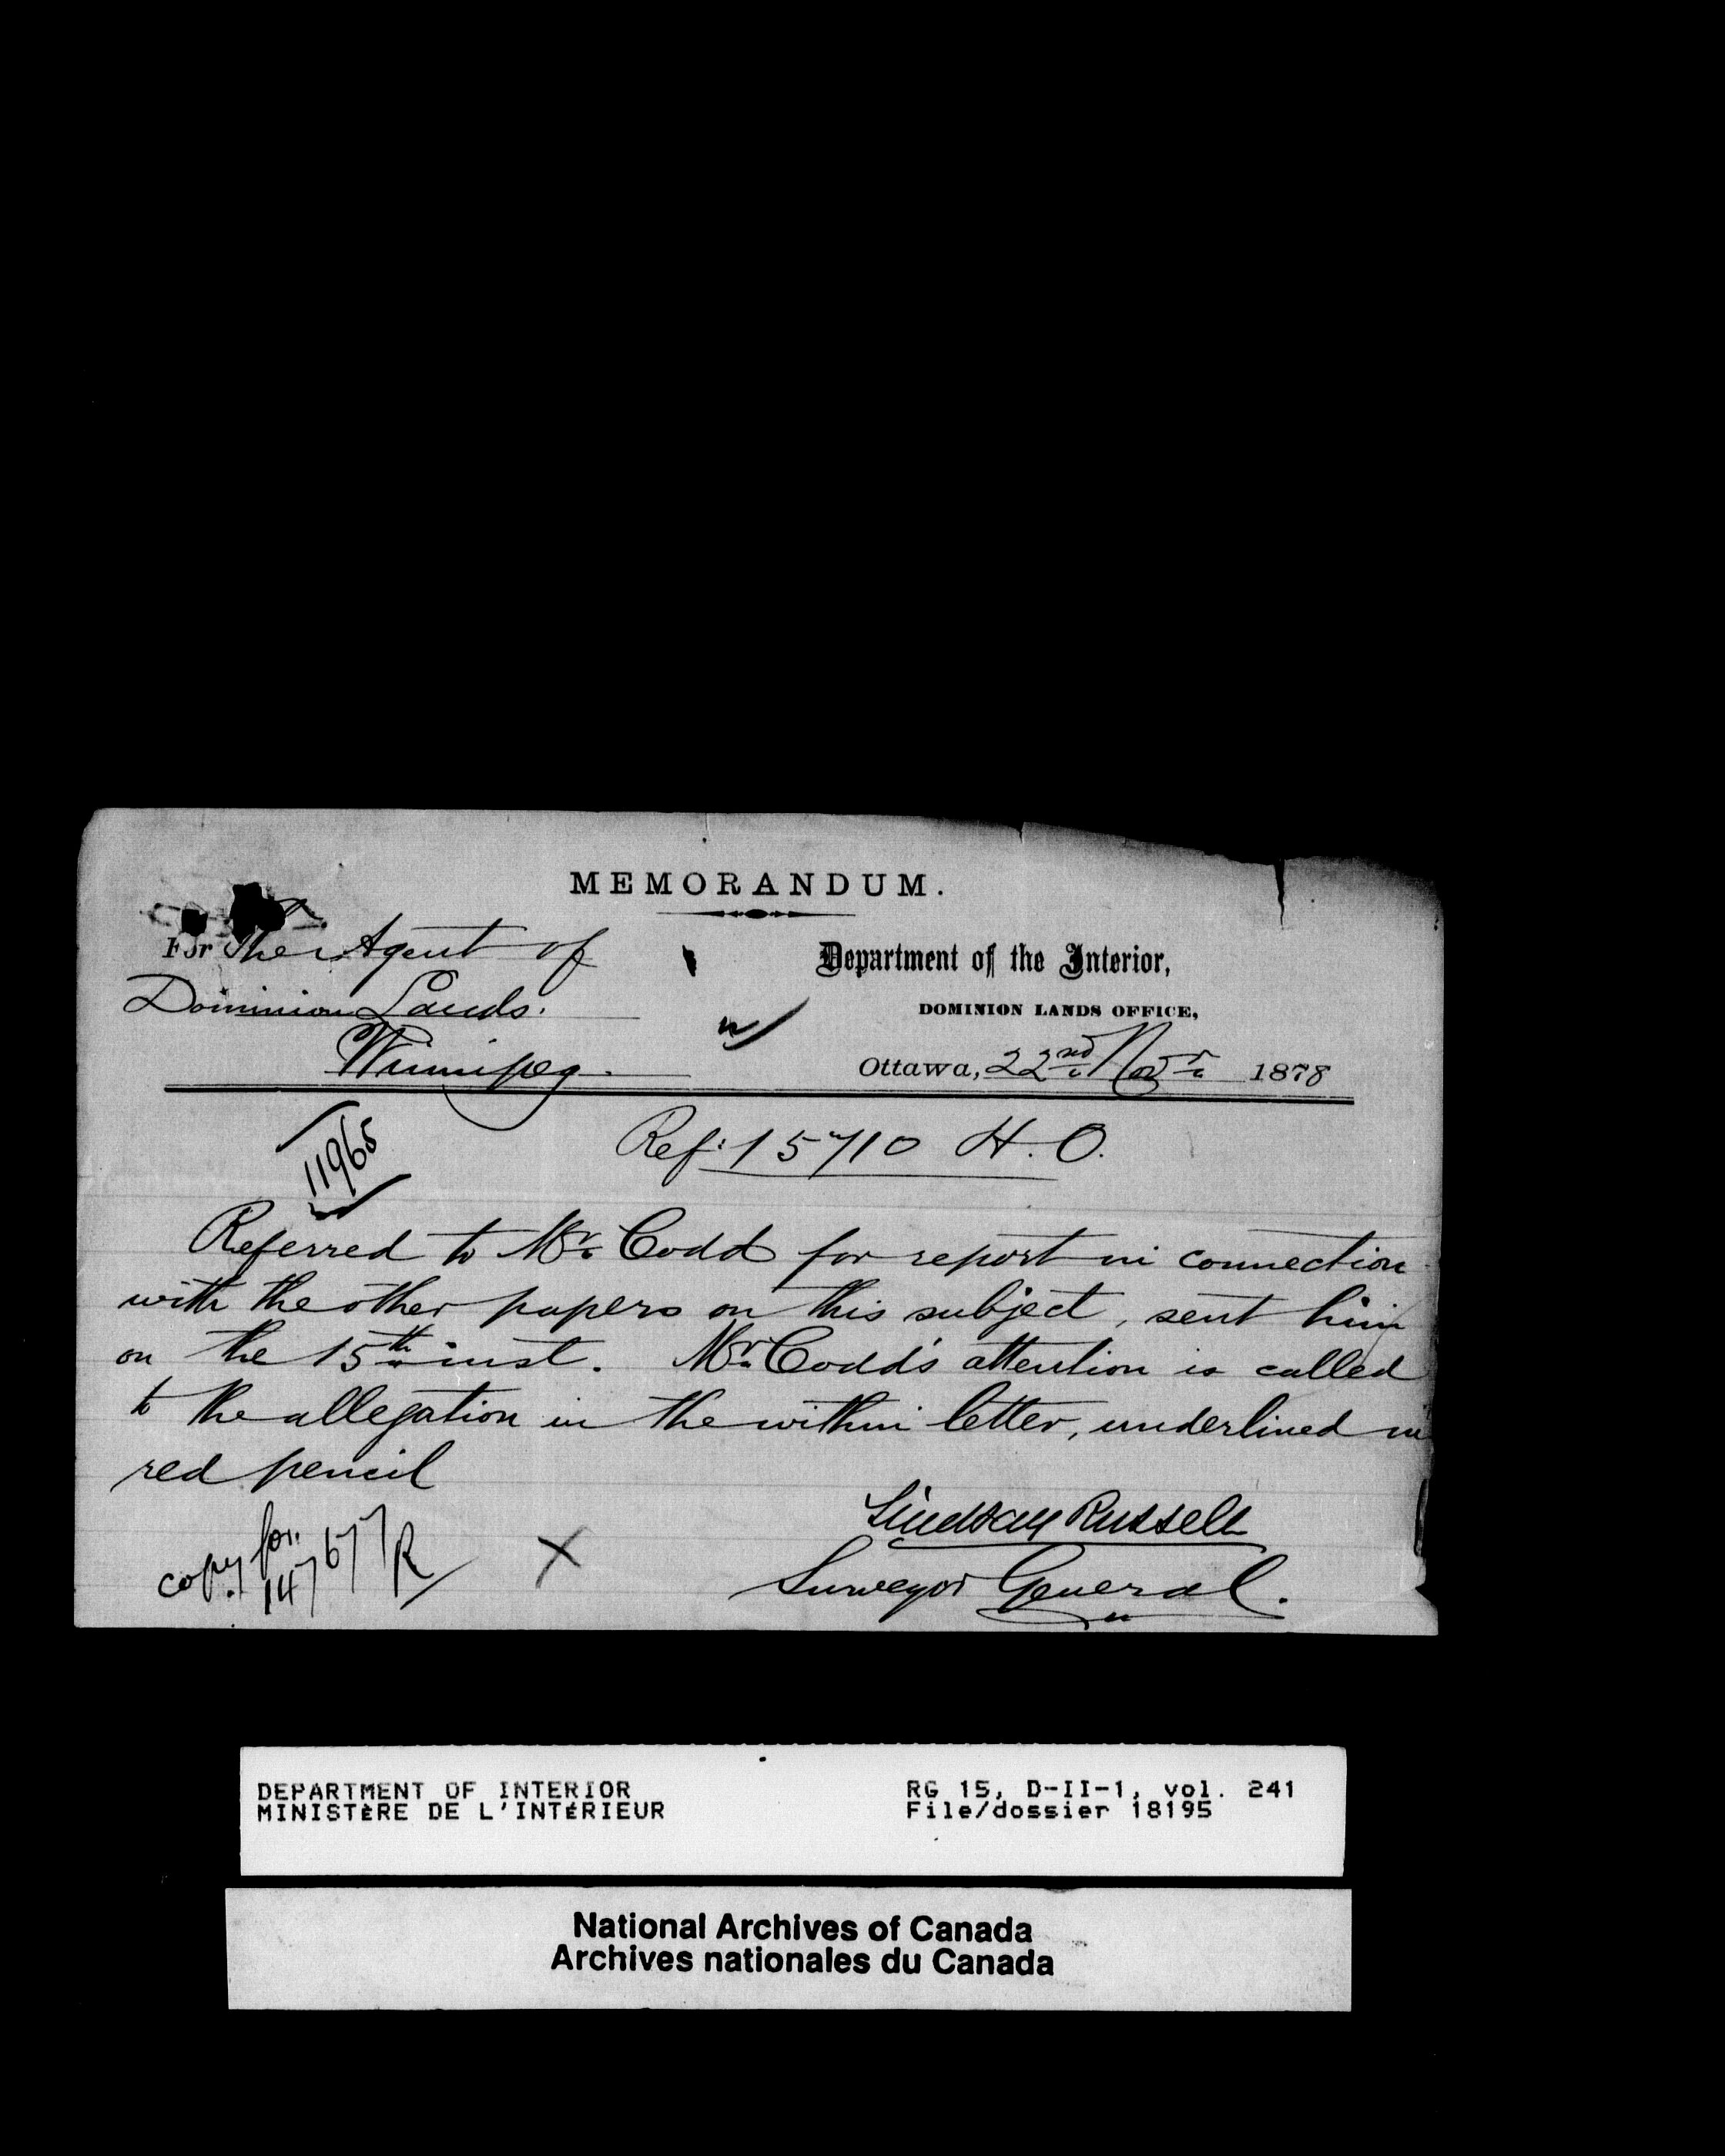 MEMORANDUM.
For The Agent of
Dominion Lands.
Winnipeg.
Department of the Interior,
DOMINION LANDS OFFICE,
Ottawa, 22nd Novr 1878
11965
Ref: 15710 H.O.
Referred to Mr. Codd for report in connection
with the other papers on this subject, sent him
on the 15th inst. Mr. Codd's attention is called
to the allegation in the within letter, underlined in
red pencil
Lindsay Russell
Surveyor General.
copy for
147677 R
X
DEPARTMENT OF INTERIOR
MINISTÈRE DE L'INTÉRIEUR
RG 15, D-II-1, vol. 241
File/dossier 18195
National Archives of Canada
Archives nationales du Canada